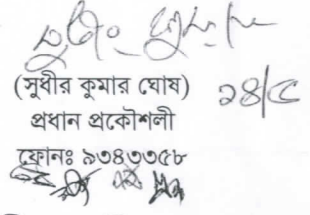 (সুধীর কুমার ঘোষ)
২৪/৫
প্রধান প্রকৌশলী
ফোনঃ ৯৩৪৩৩৫৮